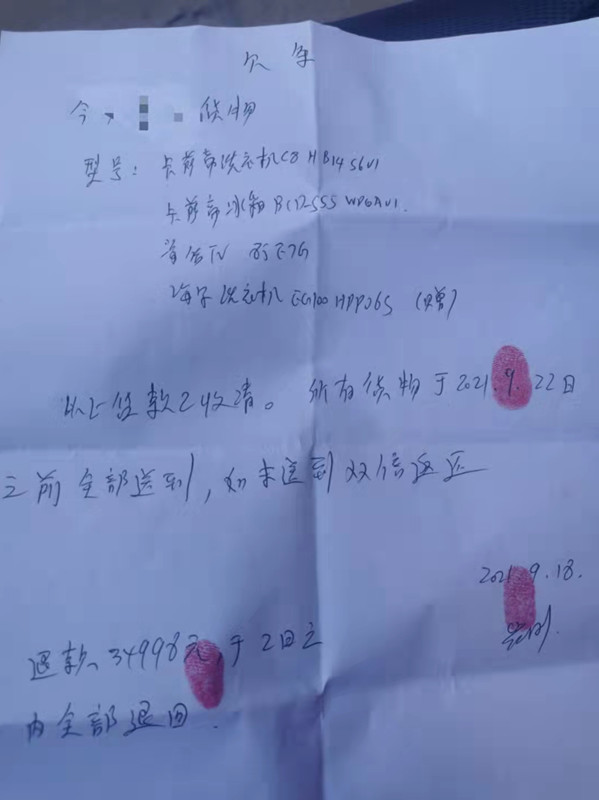 欠条
今、 货物
型号: 卡萨帝洗衣机C8 HB14S6U1
卡萨帝冰箱 BCD-555 WDGAU1.
TV 85E7G
海尔洗衣机 EG100HPRO6S (赠)
以上货款已收清。所有货物于2021.9.22日
之前全部送到,如未送到双倍返还
2021.9.18.
退款、34998元,于2日之
内全部退回.